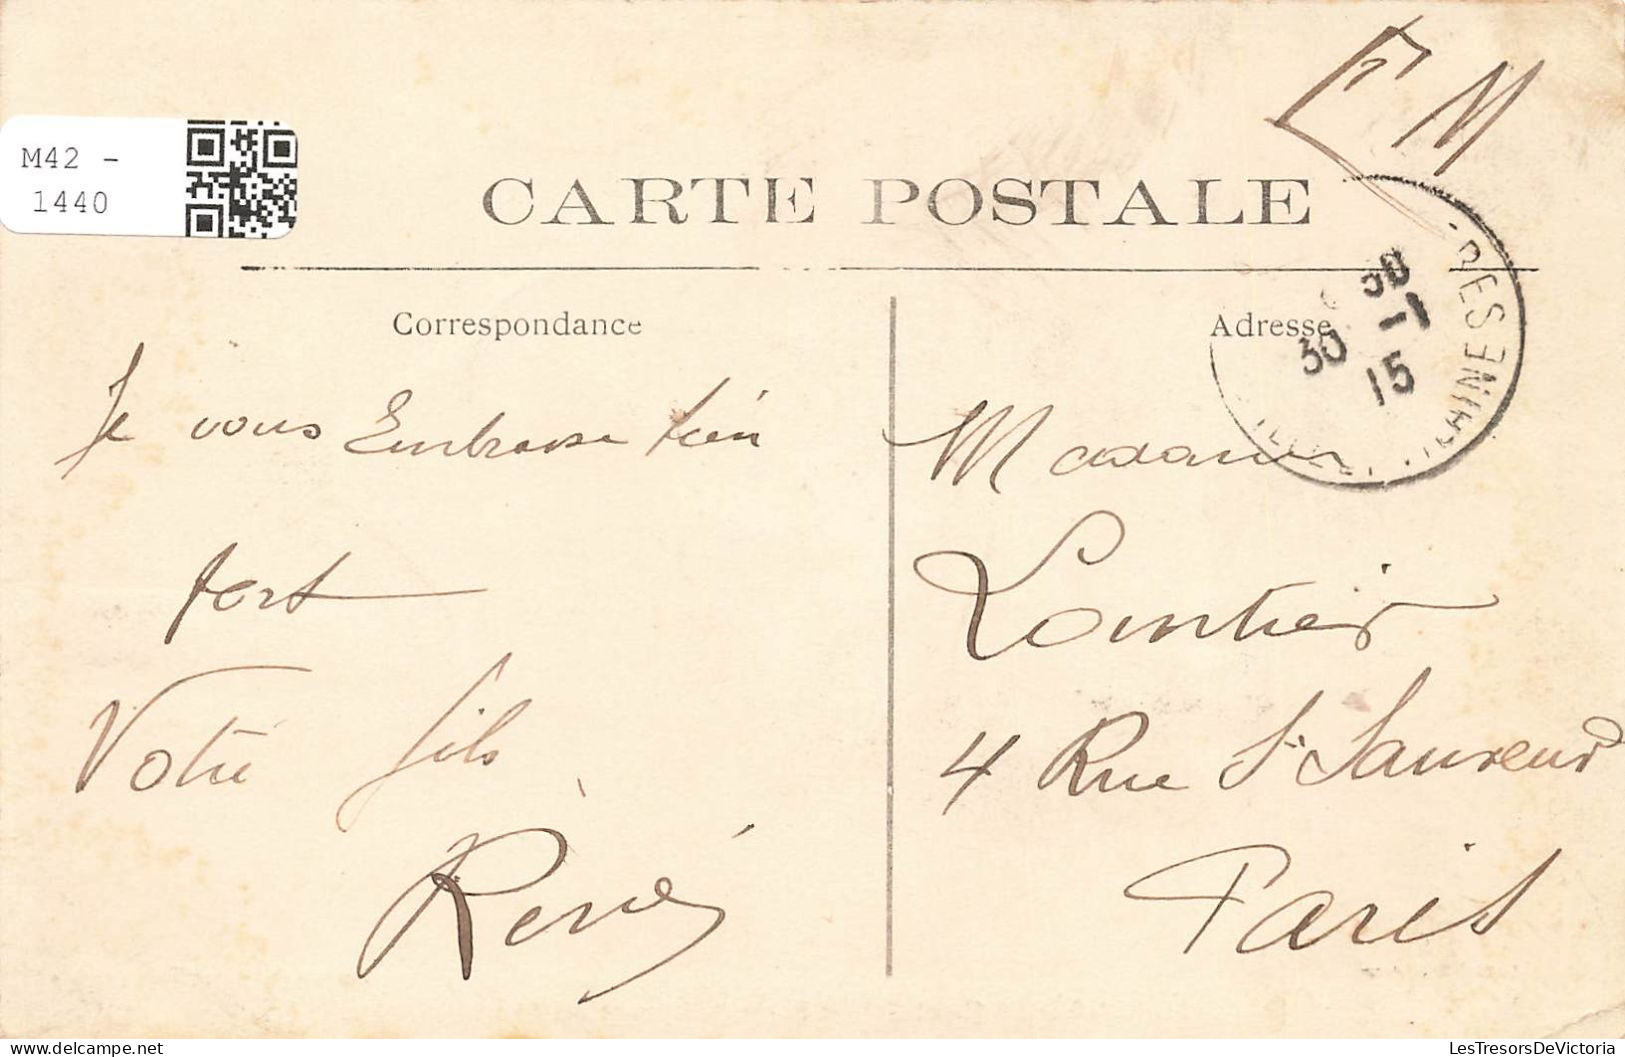 F M
M42 -
1440
CARTE POSTALE
Correspondance
Adresse
30 -1
30 15
Je vous Embrasse bien
fort
Votre fils
René
Madame
Lointier
4 Rue St Sauveur
Paris
LesTresorsDeVictoria